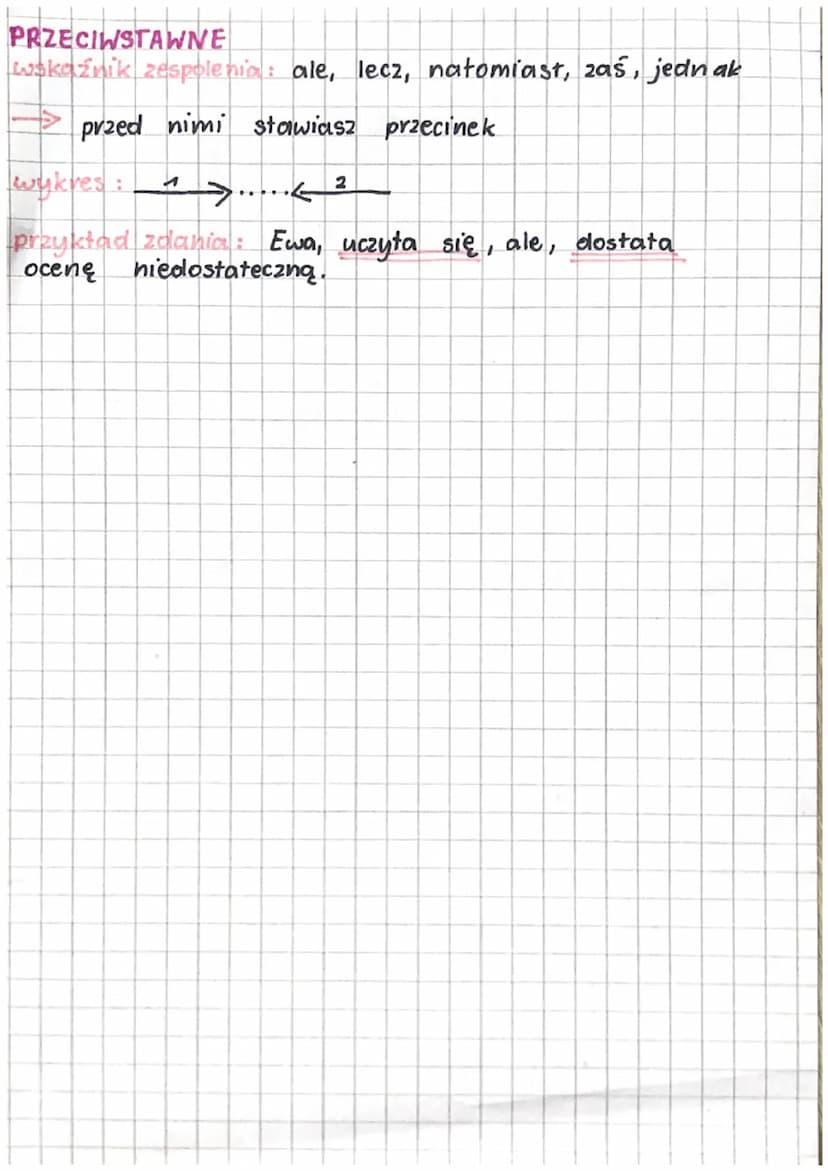 PRZECIWSTAWNE
wskaźnik zespolenia: ale, lecz, natomiast, zaś, jednak
→ przed nimi stawiasz przecinek
wykres: 1 →.....← 2
przykład zdania: Ewa, uczyła się, ale, dostała
ocenę niedostateczną.